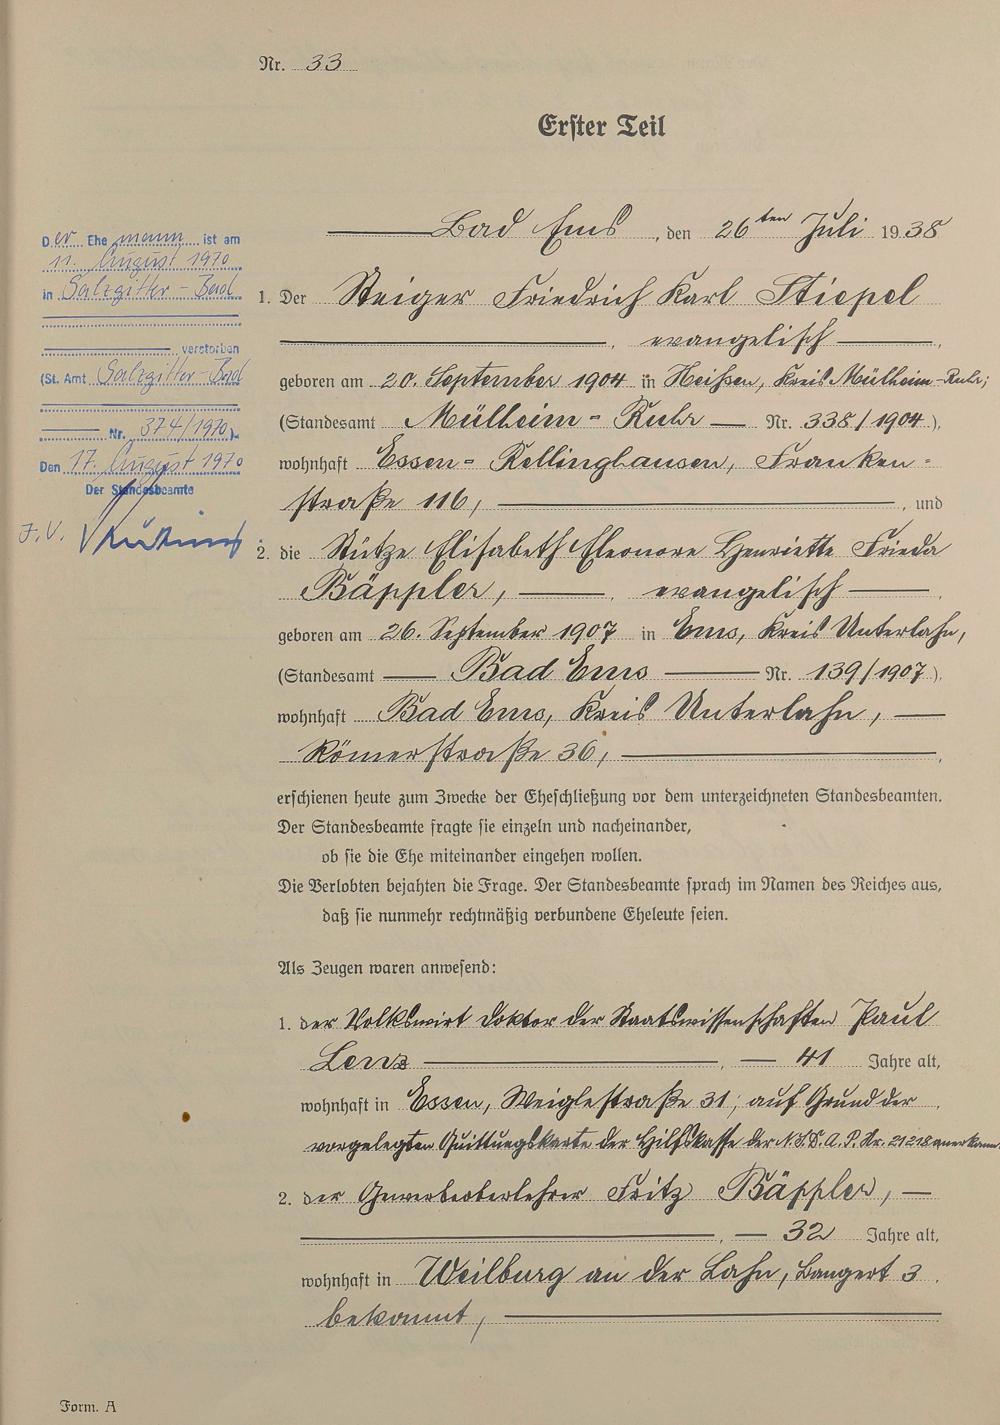 Nr. 33
Erster Teil
Bad Ems, den 26ten Juli 1938
1. Der Steiger Friedrich Karl Stiepel
, evangelisch,
geboren am 20. September 1904 in Heißen, Kreis Mülheim-Ruhr,
(Standesamt Mülheim-Ruhr Nr. 338/1904),
wohnhaft Essen-Rellinghausen, Franken-
straße 116, , und
2. die Stütze Elisabeth Eleonore Henriette Frieda
Bäppler, , evangelisch,
geboren am 26. September 1907 in Ems, Kreis Unterlahn,
(Standesamt Bad Ems Nr. 139/1907),
wohnhaft Bad Ems, Kreis Unterlahn,
Römerstraße 36, ,
erschienen heute zum Zwecke der Eheschließung vor dem unterzeichneten Standesbeamten.
Der Standesbeamte fragte sie einzeln und nacheinander,
ob sie die Ehe miteinander eingehen wollen.
Die Verlobten bejahten die Frage. Der Standesbeamte sprach im Namen des Reiches aus,
daß sie nunmehr rechtmäßig verbundene Eheleute seien.
Als Zeugen waren anwesend:
1. der Volkswirt Doktor der Staatswissenschaften Paul
Lenz, 41 Jahre alt,
wohnhaft in Essen, Weiglestraße 31, auf Grund der
vorgelegten Quittungskarte der Hilfskasse der N.S.D.A.P. Nr. 21218 anerkannt.
2. der Gewerbeoberlehrer Fritz Bäppler,
, 32 Jahre alt,
wohnhaft in Weilburg an der Lahn, Bangert 3.
bekannt,
Der Ehemann ist am
11. August 1970
in Salzgitter-Bad
verstorben
(St. Amt Salzgitter-Bad
Nr. 374/1970).
Den 17. August 1970
Der Standesbeamte
J.V.
Form. A